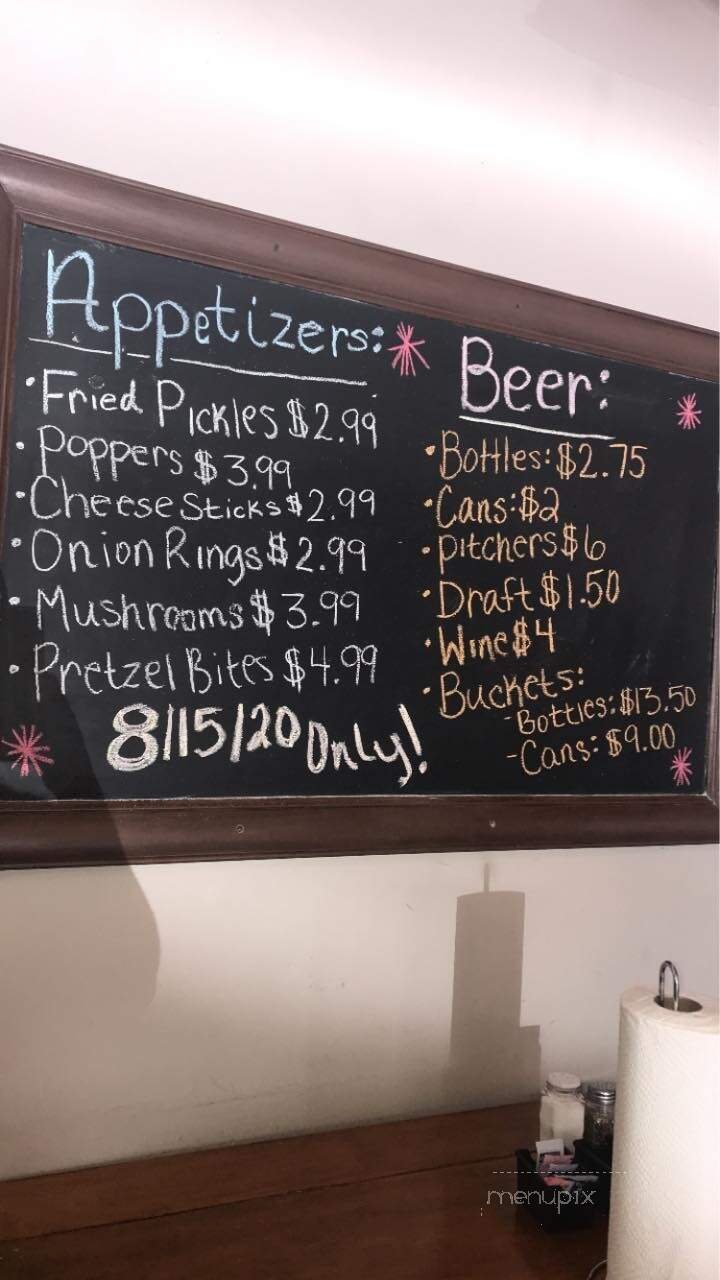 Appetizers:
• Fried Pickles $2.99
• Poppers $3.99
• Cheese Sticks $2.99
• Onion Rings $2.99
• Mushrooms $3.99
• Pretzel Bites $4.99
8/15/20 Only!
Beer:
• Bottles: $2.75
• Cans: $2
• Pitchers $6
• Draft $1.50
• Wine $4
• Buckets:
- Bottles: $13.50
- Cans: $9.00
menupix